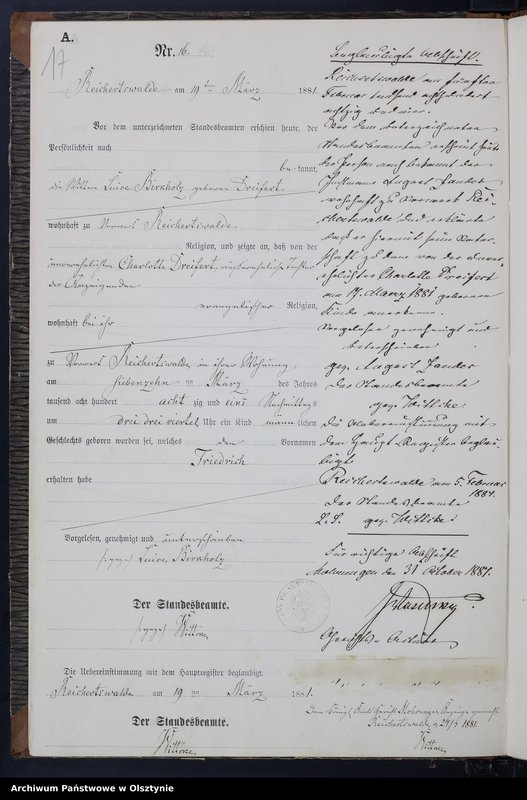 A.
17
Nr. 16.
Reichertswalde am 19 ten März 1881.
Vor dem unterzeichneten Standesbeamten erschien heute, der
Persönlichkeit nach
be kannt,
die Wittwe Luise Birkholz geborene Dreifert
wohnhaft zu Vorwerk Reichertswalde
Religion, und zeigte an, daß von der
unverehelichten Charlotte Dreifert, außereheliche Tochter
der Anzeigenden
evangelischer Religion,
wohnhaft bei ihr
zu Vorwerk Reichertswalde in ihrer Wohnung
am siebenzehn ten März des Jahres
tausend acht hundert acht zig und eins Nachmittags
um drei drei viertel Uhr ein Kind männ lichen
Geschlechts geboren worden sei, welches den Vornamen
Friedrich
erhalten habe
Vorgelesen, genehmigt und unterschrieben
(gez.) Luise Birkholz
Der Standesbeamte.
(gez.)
Die Uebereinstimmung mit dem Hauptregister beglaubigt.
Reichertswalde am 19 ten März 1881.
Der Standesbeamte.
Beglaubigte Abschrift.
Reichertswalde am fünften
Februar tausend achthundert
achtzig und vier.
Vor dem unterzeichneten
Standesbeamten erschien heute
der Person nach bekannt der
August Zander
wohnhaft zu Vorwerk Rei-
chertswalde und erklärte
daß er hiermit seine Vater-
schaft zu dem von der unver-
ehelichten Charlotte Dreifert
am 17. März 1881 geborenen
Kinde anerkenne.
Vorgelesen genehmigt und
unterschrieben
gez. August Zander
Der Standesbeamte
gez.
Die Uebereinstimmung mit
dem Haupt-Register beglau-
bigt
Reichertswalde am 5. Februar
1884.
Der Standesbeamte
L.S. gez.
Für richtige Abschrift
Mohrungen den 31 Oktober
Reichertswalde
1881.
Archiwum Państwowe w Olsztynie